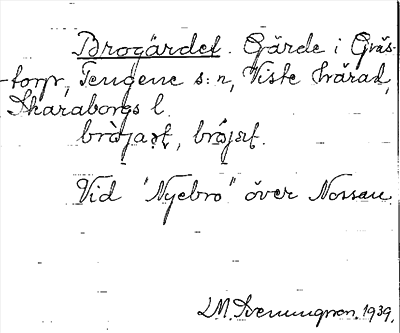 Brogärdet. Gärde i Gräs-
-torp, Tengene s:n, Viste härad,
Skaraborgs l.
Vid "Nyebro" över Nossan.
1939.